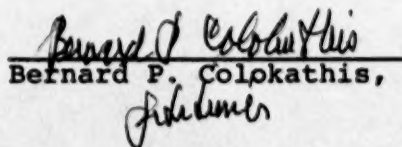 Bernard P. Colokathis
Bernard P. Colokathis,